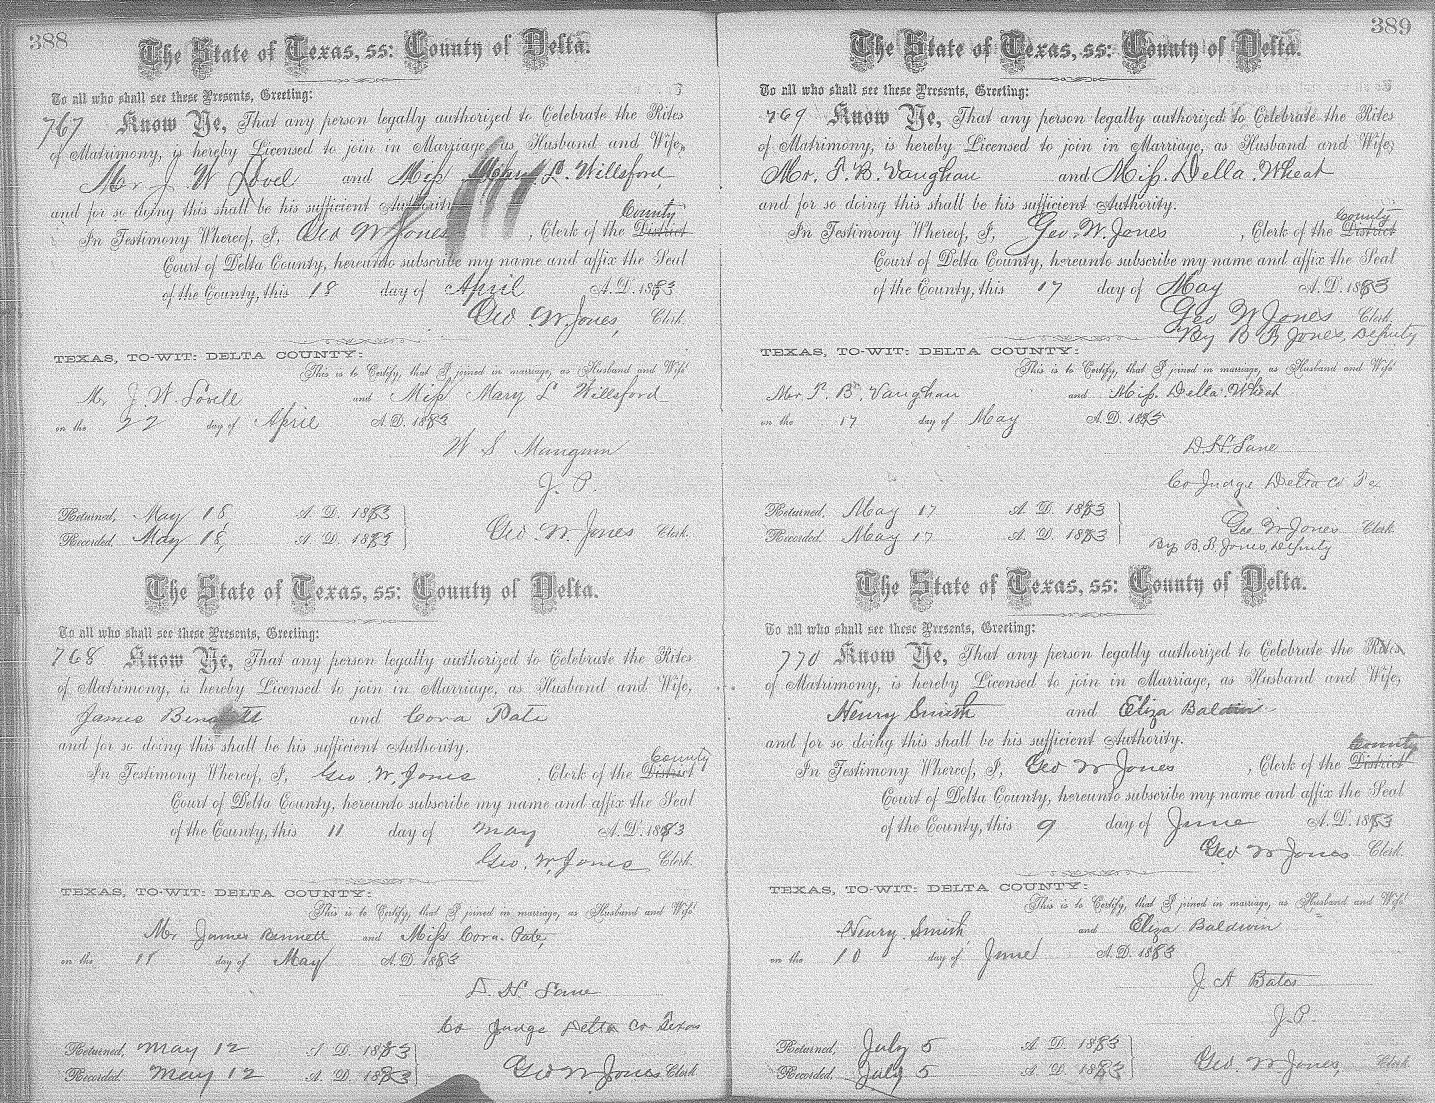 388
The State of Texas, ss: County of Delta.
To all who shall see these Presents, Greeting:
767 Know Ye, That any person legally authorized to Celebrate the Rites
of Matrimony, is hereby Licensed to join in Marriage, as Husband and Wife,
Mr J W Lovel and Miss Mary L. Willsford
and for so doing this shall be his sufficient Authority.
County
In Testimony Whereof, I, Geo W Jones, Clerk of the District
Court of Delta County, hereunto subscribe my name and affix the Seal
of the County, this 18 day of April A.D. 1883
Geo W. Jones, Clerk.
TEXAS, TO-WIT: DELTA COUNTY:
This is to Certify, that I joined in marriage, as Husband and Wife
Mr J. W. Lovell and Miss Mary L Willsford
on the 22 day of April A.D. 1883
W S Mangum
J. P.
Returned, May 18 A. D. 1883
Recorded, May 18, A. D. 1883 Geo. W. Jones Clerk.
The State of Texas, ss: County of Delta.
To all who shall see these Presents, Greeting:
768 Know Ye, That any person legally authorized to Celebrate the Rites
of Matrimony, is hereby Licensed to join in Marriage, as Husband and Wife,
James Bennett and Cora Pate
and for so doing this shall be his sufficient Authority.
County
In Testimony Whereof, I, Geo. W. Jones, Clerk of the District
Court of Delta County, hereunto subscribe my name and affix the Seal
of the County, this 11 day of May A.D. 1883
Geo. W. Jones Clerk.
TEXAS, TO-WIT: DELTA COUNTY:
This is to Certify, that I joined in marriage, as Husband and Wife
Mr James Bennett and Miss Cora Pate,
on the 11 day of May A.D. 1883
D. H. Lane
Co Judge Delta Co Texas
Returned, May 12 A. D. 1883
Recorded, May 12 A. D. 1883 Geo W Jones Clerk
389
The State of Texas, ss: County of Delta.
To all who shall see these Presents, Greeting:
769 Know Ye, That any person legally authorized to Celebrate the Rites
of Matrimony, is hereby Licensed to join in Marriage, as Husband and Wife,
Mr. T. B. Vaughan and Miss. Della. Wheat
and for so doing this shall be his sufficient Authority.
County
In Testimony Whereof, I, Geo. W. Jones, Clerk of the District
Court of Delta County, hereunto subscribe my name and affix the Seal
of the County, this 17 day of May A.D. 1883
Geo W Jones Clerk,
By B B Jones, Deputy
TEXAS, TO-WIT: DELTA COUNTY:
This is to Certify, that I joined in marriage, as Husband and Wife
Mr. T. B. Vaughan and Miss. Della. Wheat
on the 17 day of May A.D. 1883
D. H. Lane
Co Judge Delta Co
Returned, May 17 A. D. 1883
Recorded, May 17 A. D. 1883 Geo W Jones Clerk
By B. B. Jones, Deputy
The State of Texas, ss: County of Delta.
To all who shall see these Presents, Greeting:
770 Know Ye, That any person legally authorized to Celebrate the Rites
of Matrimony, is hereby Licensed to join in Marriage, as Husband and Wife,
Henry Smith and Eliza Baldwin
and for so doing this shall be his sufficient Authority.
County
In Testimony Whereof, I, Geo W Jones, Clerk of the District
Court of Delta County, hereunto subscribe my name and affix the Seal
of the County, this 9 day of June A.D. 1883
Geo W Jones Clerk.
TEXAS, TO-WIT: DELTA COUNTY:
This is to Certify, that I joined in marriage, as Husband and Wife
Henry Smith and Eliza Baldwin
on the 10 day of June A.D. 1883
J A Bates
J. P.
Returned, July 5 A. D. 1883
Recorded, July 5 A. D. 1883 Geo. W Jones, Clerk